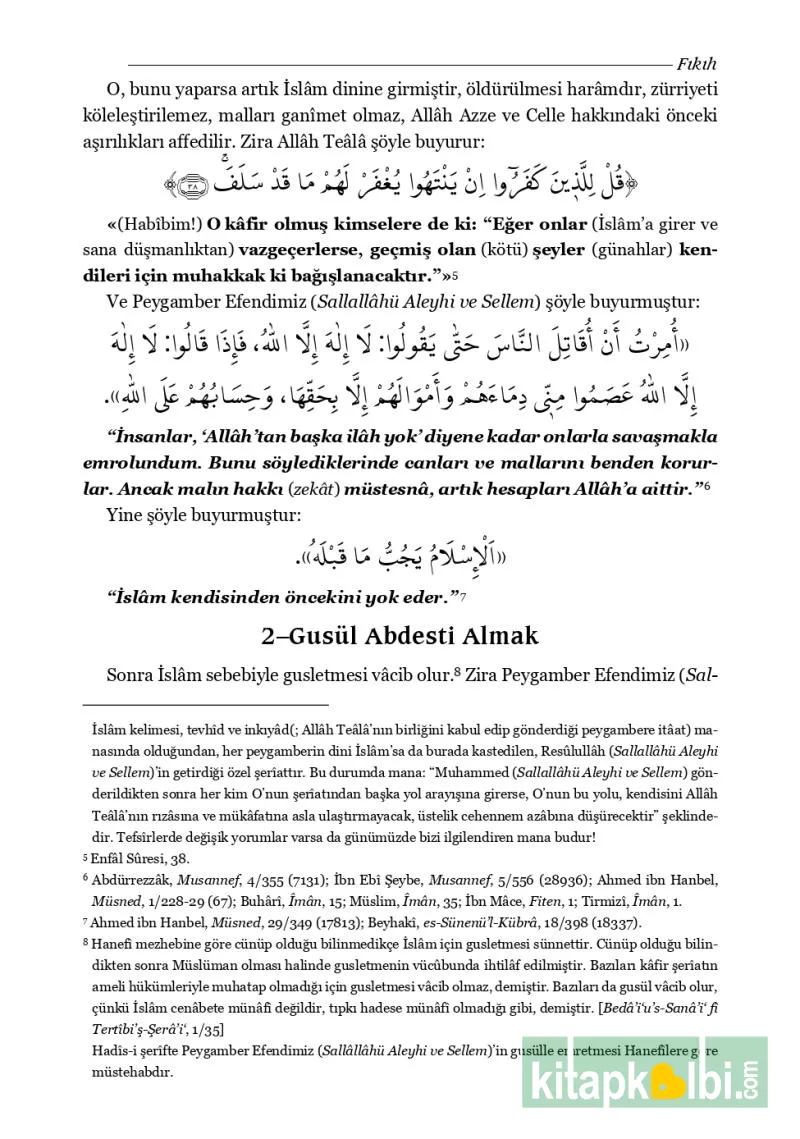 Fıkıh
O, bunu yaparsa artık İslâm dinine girmiştir, öldürülmesi harâmdır, zürriyeti
köleleştirilemez, malları ganîmet olmaz, Allâh Azze ve Celle hakkındaki önceki
aşırılıkları affedilir. Zira Allâh Teâlâ şöyle buyurur:
﴿قُلْ لِلَّذ۪ينَ كَفَرُٓوا اِنْ يَنْتَهُوا يُغْفَرْ لَهُمْ مَا قَدْ سَلَفَۚ ﴿٣٨﴾﴾
«(Habîbim!) O kâfir olmuş kimselere de ki: “Eğer onlar (İslâm’a girer ve
sana düşmanlıktan) vazgeçerlerse, geçmiş olan (kötü) şeyler (günahlar) ken-
dileri için muhakkak ki bağışlanacaktır.”»5
Ve Peygamber Efendimiz (Sallallâhü Aleyhi ve Sellem) şöyle buyurmuştur:
«أُمِرْتُ أَنْ أُقَاتِلَ النَّاسَ حَتّٰى يَقُولُوا: لَا إِلٰهَ إِلَّا اللهُ، فَإِذَا قَالُوا: لَا إِلٰهَ
إِلَّا اللهُ عَصَمُوا مِنّ۪ي دِمَاءَهُمْ وَأَمْوَالَهُمْ إِلَّا بِحَقِّهَا، وَحِسَابُهُمْ عَلَى اللهِ».
“İnsanlar, ‘Allâh’tan başka ilâh yok’ diyene kadar onlarla savaşmakla
emrolundum. Bunu söylediklerinde canları ve mallarını benden korur-
lar. Ancak malın hakkı (zekât) müstesnâ, artık hesapları Allâh’a aittir.”6
Yine şöyle buyurmuştur:
«اَلْإِسْلَامُ يَجُبُّ مَا قَبْلَهُ».
“İslâm kendisinden öncekini yok eder.”7
2–Gusül Abdesti Almak
Sonra İslâm sebebiyle gusletmesi vâcib olur.8 Zira Peygamber Efendimiz (Sal-
İslâm kelimesi, tevhîd ve inkıyâd(; Allâh Teâlâ’nın birliğini kabul edip gönderdiği peygambere itâat) ma-
nasında olduğundan, her peygamberin dini İslâm’sa da burada kastedilen, Resûlullâh (Sallallâhü Aleyhi
ve Sellem)’in getirdiği özel şerîattır. Bu durumda mana: “Muhammed (Sallallâhü Aleyhi ve Sellem) gön-
derildikten sonra her kim O’nun şerîatından başka yol arayışına girerse, O’nun bu yolu, kendisini Allâh
Teâlâ’nın rızâsına ve mükâfatına asla ulaştırmayacak, üstelik cehennem azâbına düşürecektir” şeklinde-
dir. Tefsîrlerde değişik yorumlar varsa da günümüzde bizi ilgilendiren mana budur!
5 Enfâl Sûresi, 38.
6 Abdürrezzâk, Musannef, 4/355 (7131); İbn Ebî Şeybe, Musannef, 5/556 (28936); Ahmed ibn Hanbel,
Müsned, 1/228-29 (67); Buhârî, Îmân, 15; Müslim, Îmân, 35; İbn Mâce, Fiten, 1; Tirmizî, Îmân, 1.
7 Ahmed ibn Hanbel, Müsned, 29/349 (17813); Beyhakî, es-Sünenü’l-Kübrâ, 18/398 (18337).
8 Hanefî mezhebine göre cünüp olduğu bilinmedikçe İslâm için gusletmesi sünnettir. Cünüp olduğu bilin-
dikten sonra Müslüman olması halinde gusletmenin vücûbunda ihtilâf edilmiştir. Bazıları kâfir şerîatın
ameli hükümleriyle muhatap olmadığı için gusletmesi vâcib olmaz, demiştir. Bazıları da gusül vâcib olur,
çünkü İslâm cenâbete münâfî değildir, tıpkı hadese münâfî olmadığı gibi, demiştir. [Bedâ’i‘u’s-Sanâ’i‘ fî
Tertîbi’ş-Şerâ’i‘, 1/35]
Hadîs-i şerîfte Peygamber Efendimiz (Sallâllâhü Aleyhi ve Sellem)’in gusülle emretmesi Hanefîlere göre
müstehabdır.
kitapkalbi.com